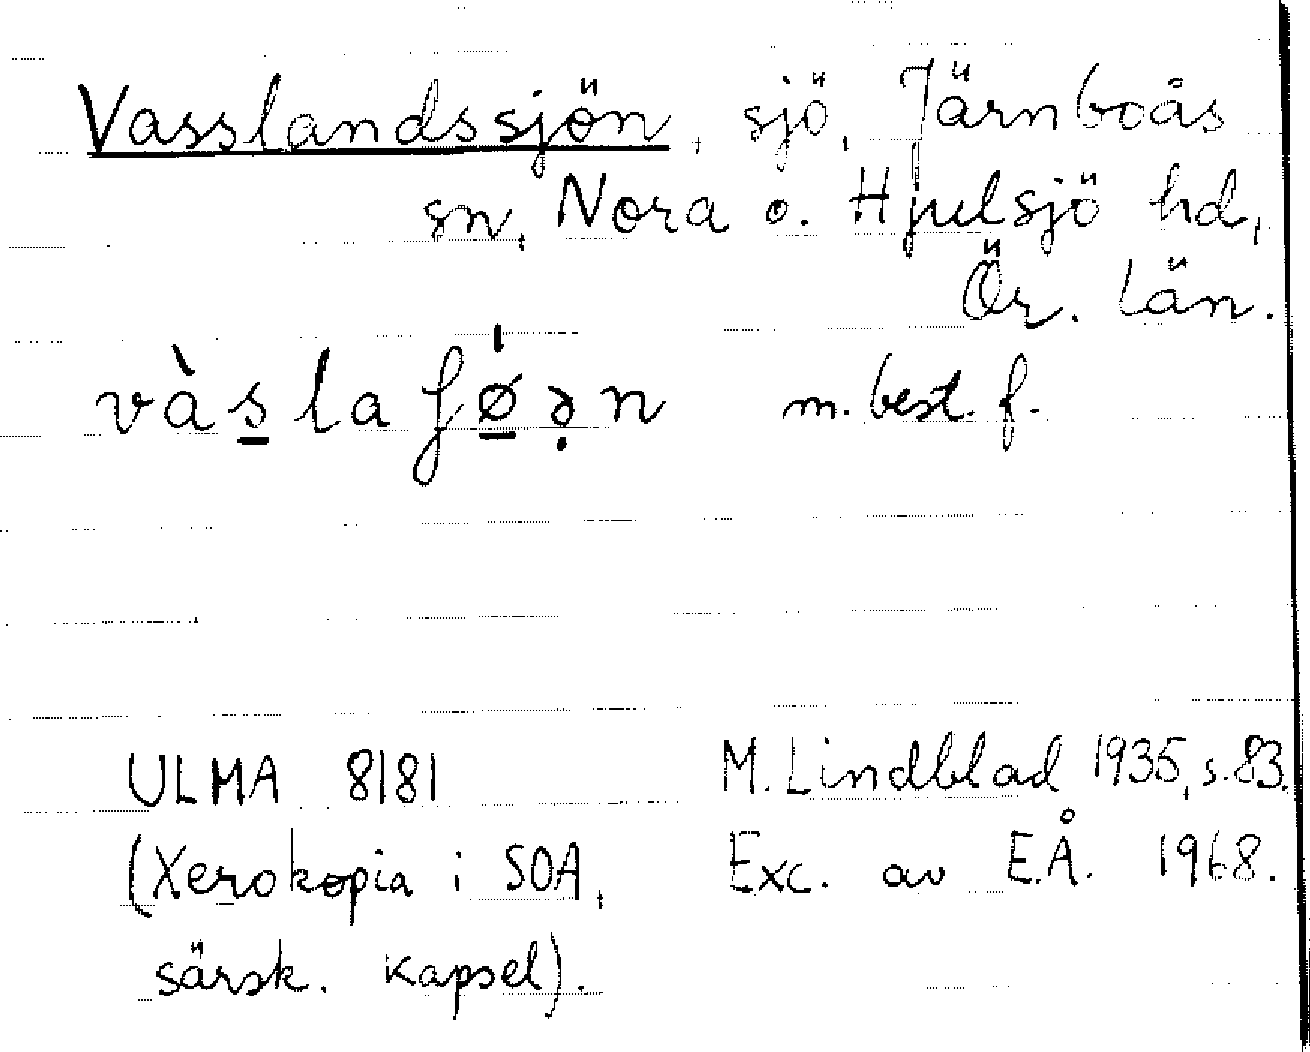 Vasslandssjön, sjö, Järnboås
sn, Nora o. Hjulsjö hd,
Ör. län.
vàs̲laʃǿ̲ə̣n m. best. f.
ULMA 8181 M. Lindblad 1935, s. 83.
(Xerokopia i SOA, Exc. av E.Å. 1968.
särsk. kapsel).